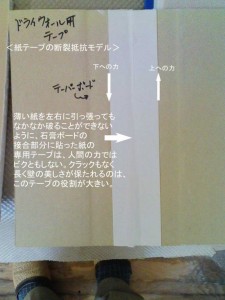 ドライウォール用
テープ
＜紙テープの断裂抵抗モデル＞
下への力
上への力
テーパーボード
薄い紙を左右に引っ張っても
なかなか破ることができない
ように、石膏ボードの
接合部分に貼った紙の
専用テープは、人間の力では
ビクともしない。クラックもなく
長く壁の美しさが保たれるのは、
このテープの役割が大きい。